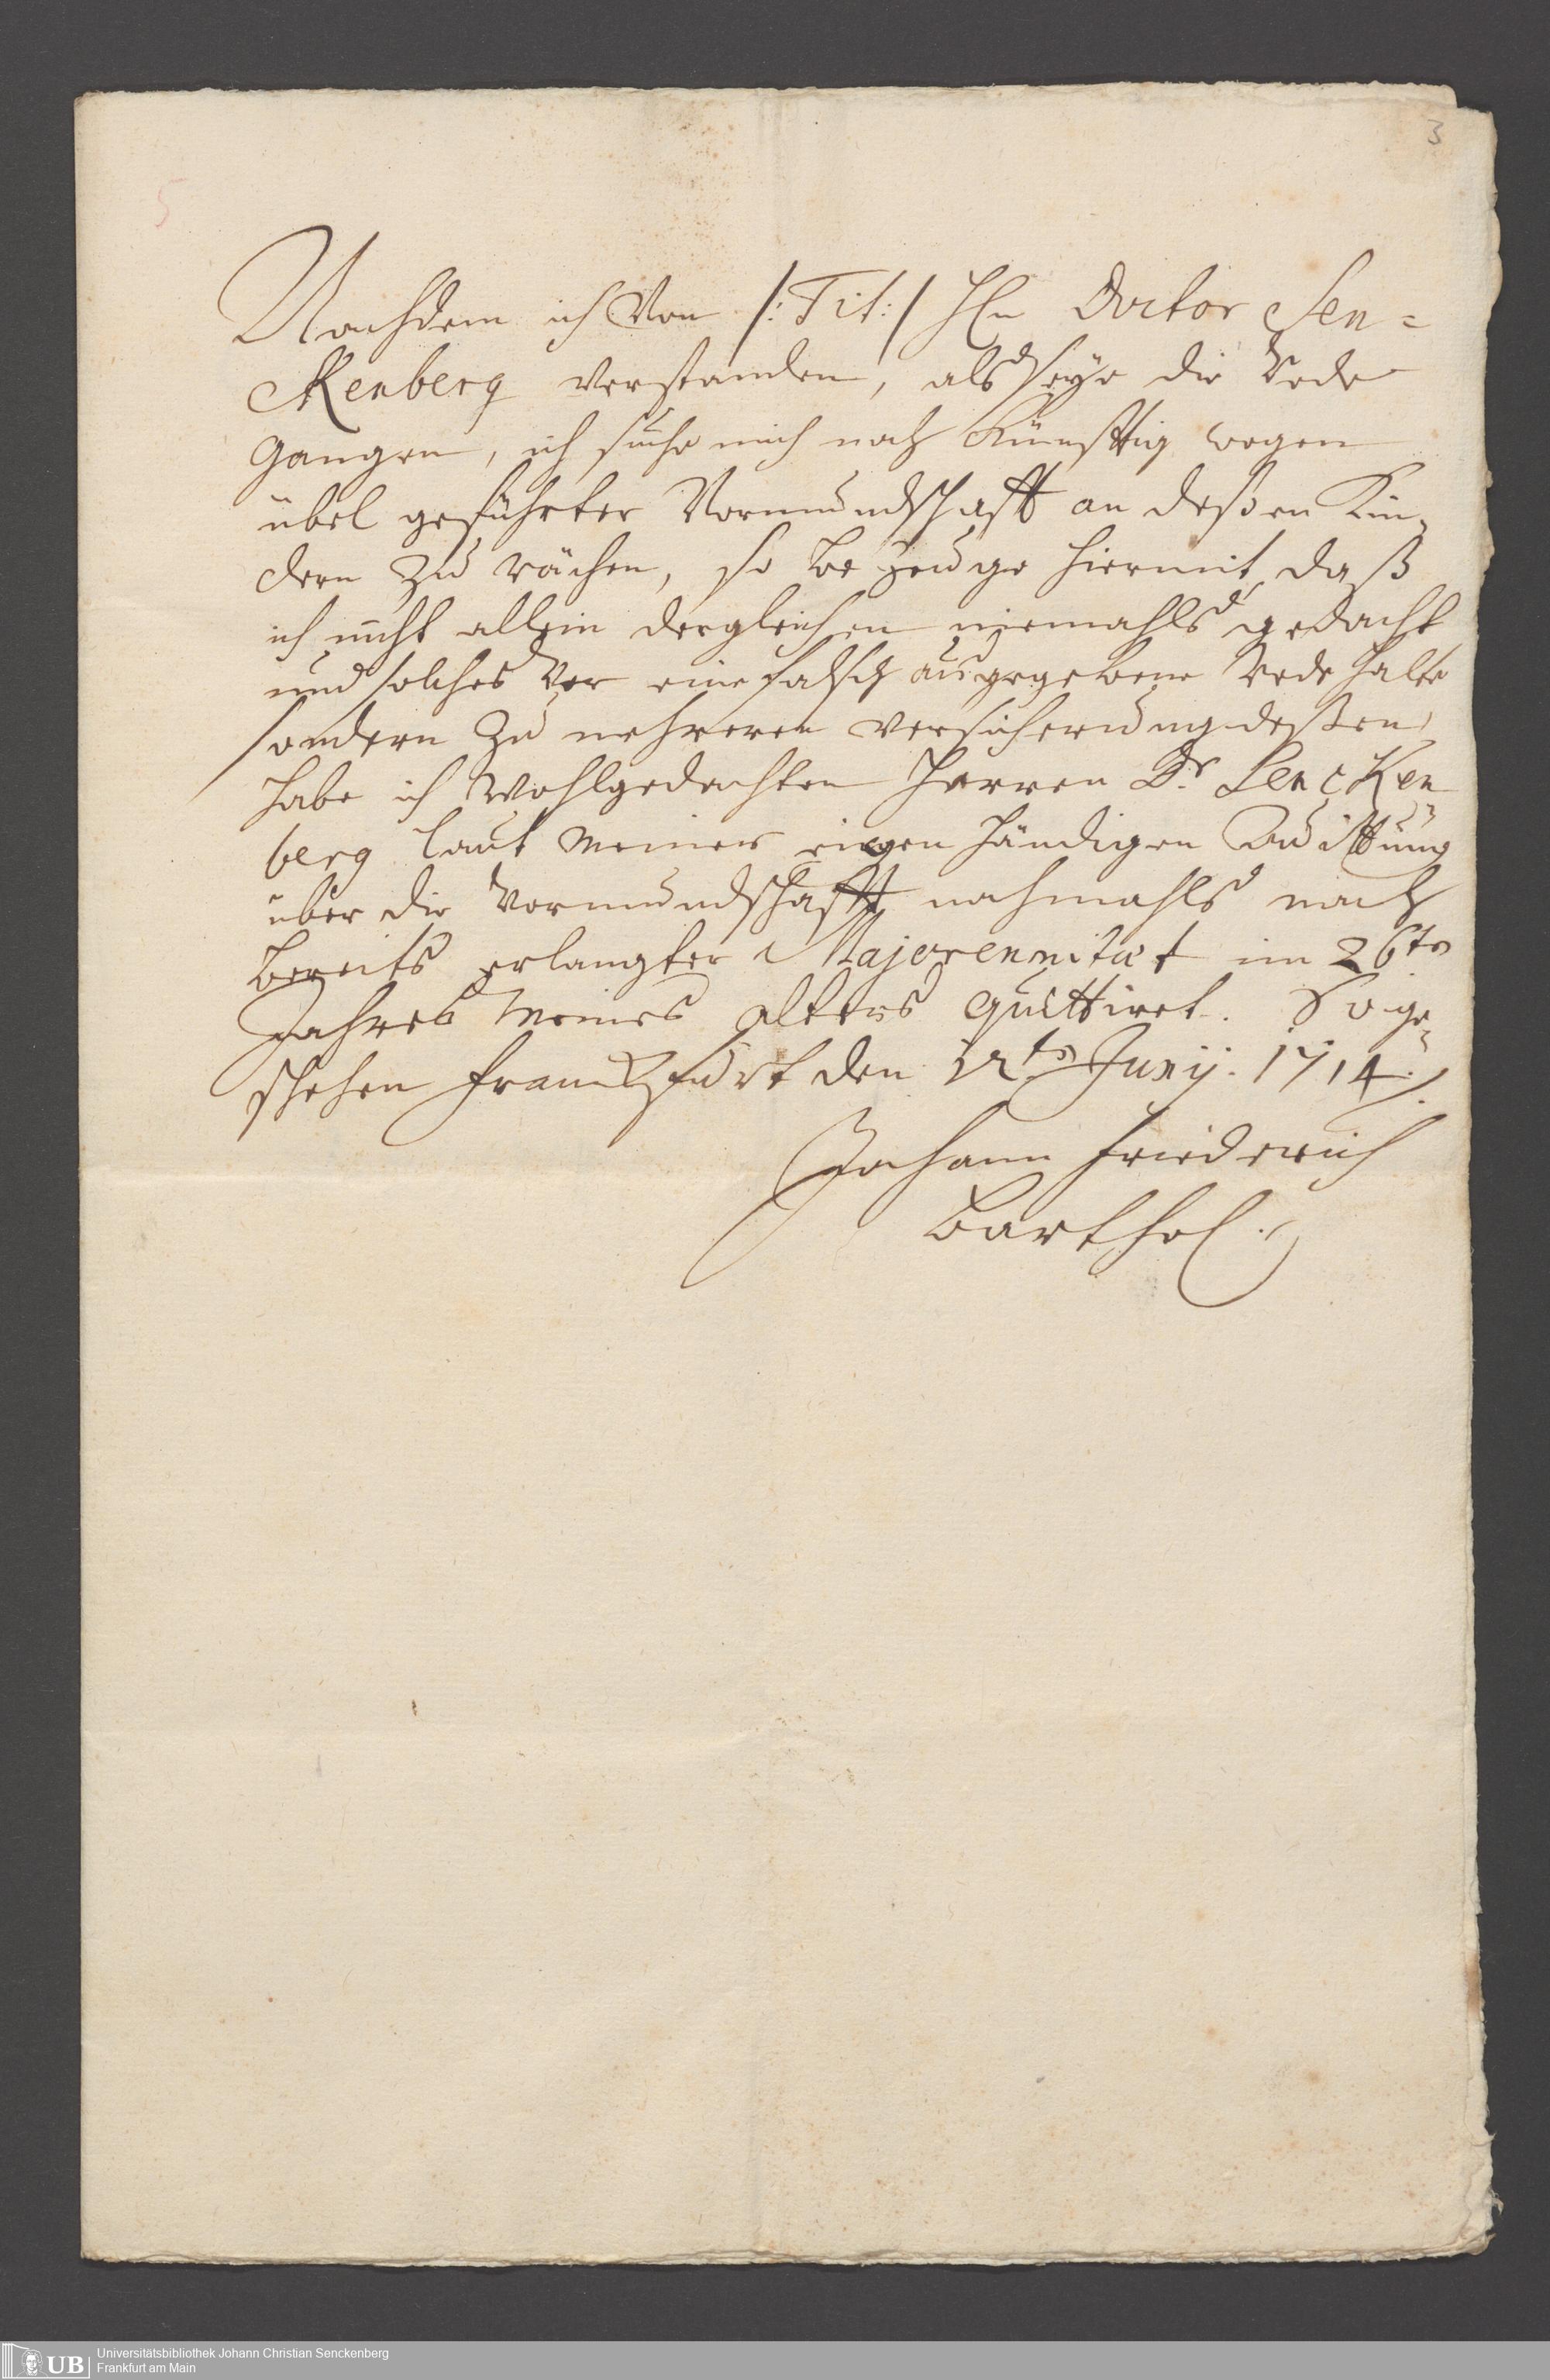 3
5
Nachdem ich Von /: Tit: / Hln Doctor Sen=
ckenberg verstanden, als seye die Rede
gangen, ich suche mich noch Künfftig wegen
übel geführter Vormundschafft an deßen Kin-
dern zu rächen, so bezeuge hiermit, daß
ich nicht allein dergleichen niemahls gedacht
und solches Vor eine falsch ausgegebene Rede halte
sondern zu mehreren versicherung deßen,
habe ich Wohlgedachten Herren Dr. Sencken
berg laut meiner eigen händigen Quittung
über die Vormundschafft nochmahls nach
bereits erlangter Majorennitæt im 26ten
Jahres meines alters quittiret. So ge-
schehen Franckfurt den 12ten Junij. 1714.
Johann Friederich
Barthol.
Universitätsbibliothek Johann Christian Senckenberg
UB Frankfurt am Main